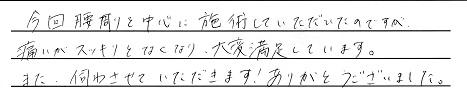 今回腰周りを中心に施術していただいたのですが、
痛いがスッキリとなくなり、大変満足しています。
また、伺わさせていただきます!ありがとうございました。